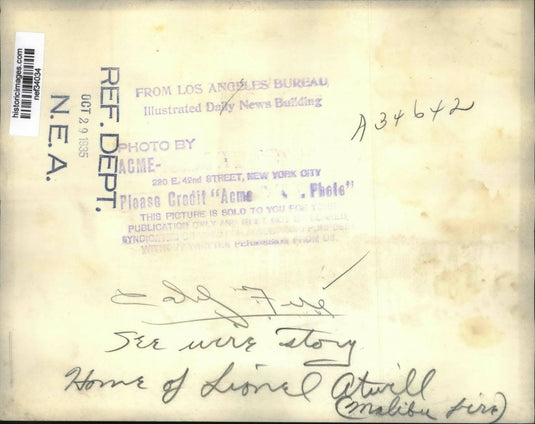 historicimages.com
nef34034
REF. DEPT.
OCT 29 1935
N.E.A.
FROM LOS ANGELES BUREAU
Illustrated Daily News Building
A34642
PHOTO BY
ACME-
220 E. 42nd STREET, NEW YORK CITY
Please Credit "Acme Photo"
THIS PICTURE IS SOLD TO YOU FOR YOUR
PUBLICATION ONLY AND MUST NOT BE LOANED,
SYNDICATED
WITHOUT WRITTEN PERMISSION FROM US.
Fire
See wire story
Home of Lionel Atwill
(Malibu fire)